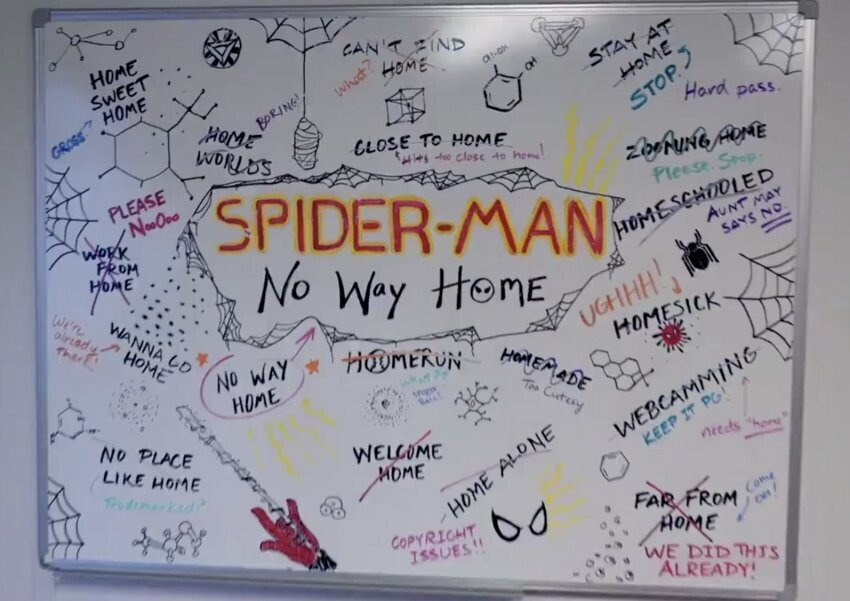 HOME
SWEET
HOME
GROSS
BORING!
HOME
WORLDS
CAN'T FIND
HOME
What?
CH₂OH
OH
CLOSE TO HOME
Hits too close to home!
STAY AT
HOME
STOP.
Hard pass.
ZOOMING HOME
Please. Stop.
HOMESCHOOLED
AUNT MAY
SAYS NO.
PLEASE
NoOoo
WORK
FROM
HOME
SPIDER-MAN
No Way HOME
UGHHH!
HOMESICK
We're
already
there!
WANNA GO
HOME
NO WAY
HOME
HOOMERUN
What??
HOMEMADE
Too Cutesy
WEBCAMMING
KEEP IT PG!
needs "home"
NO PLACE
LIKE HOME
Trademarked?
WELCOME
HOME
HOME ALONE
COPYRIGHT
ISSUES!!
FAR FROM
HOME
Come
on!
WE DID THIS
ALREADY!